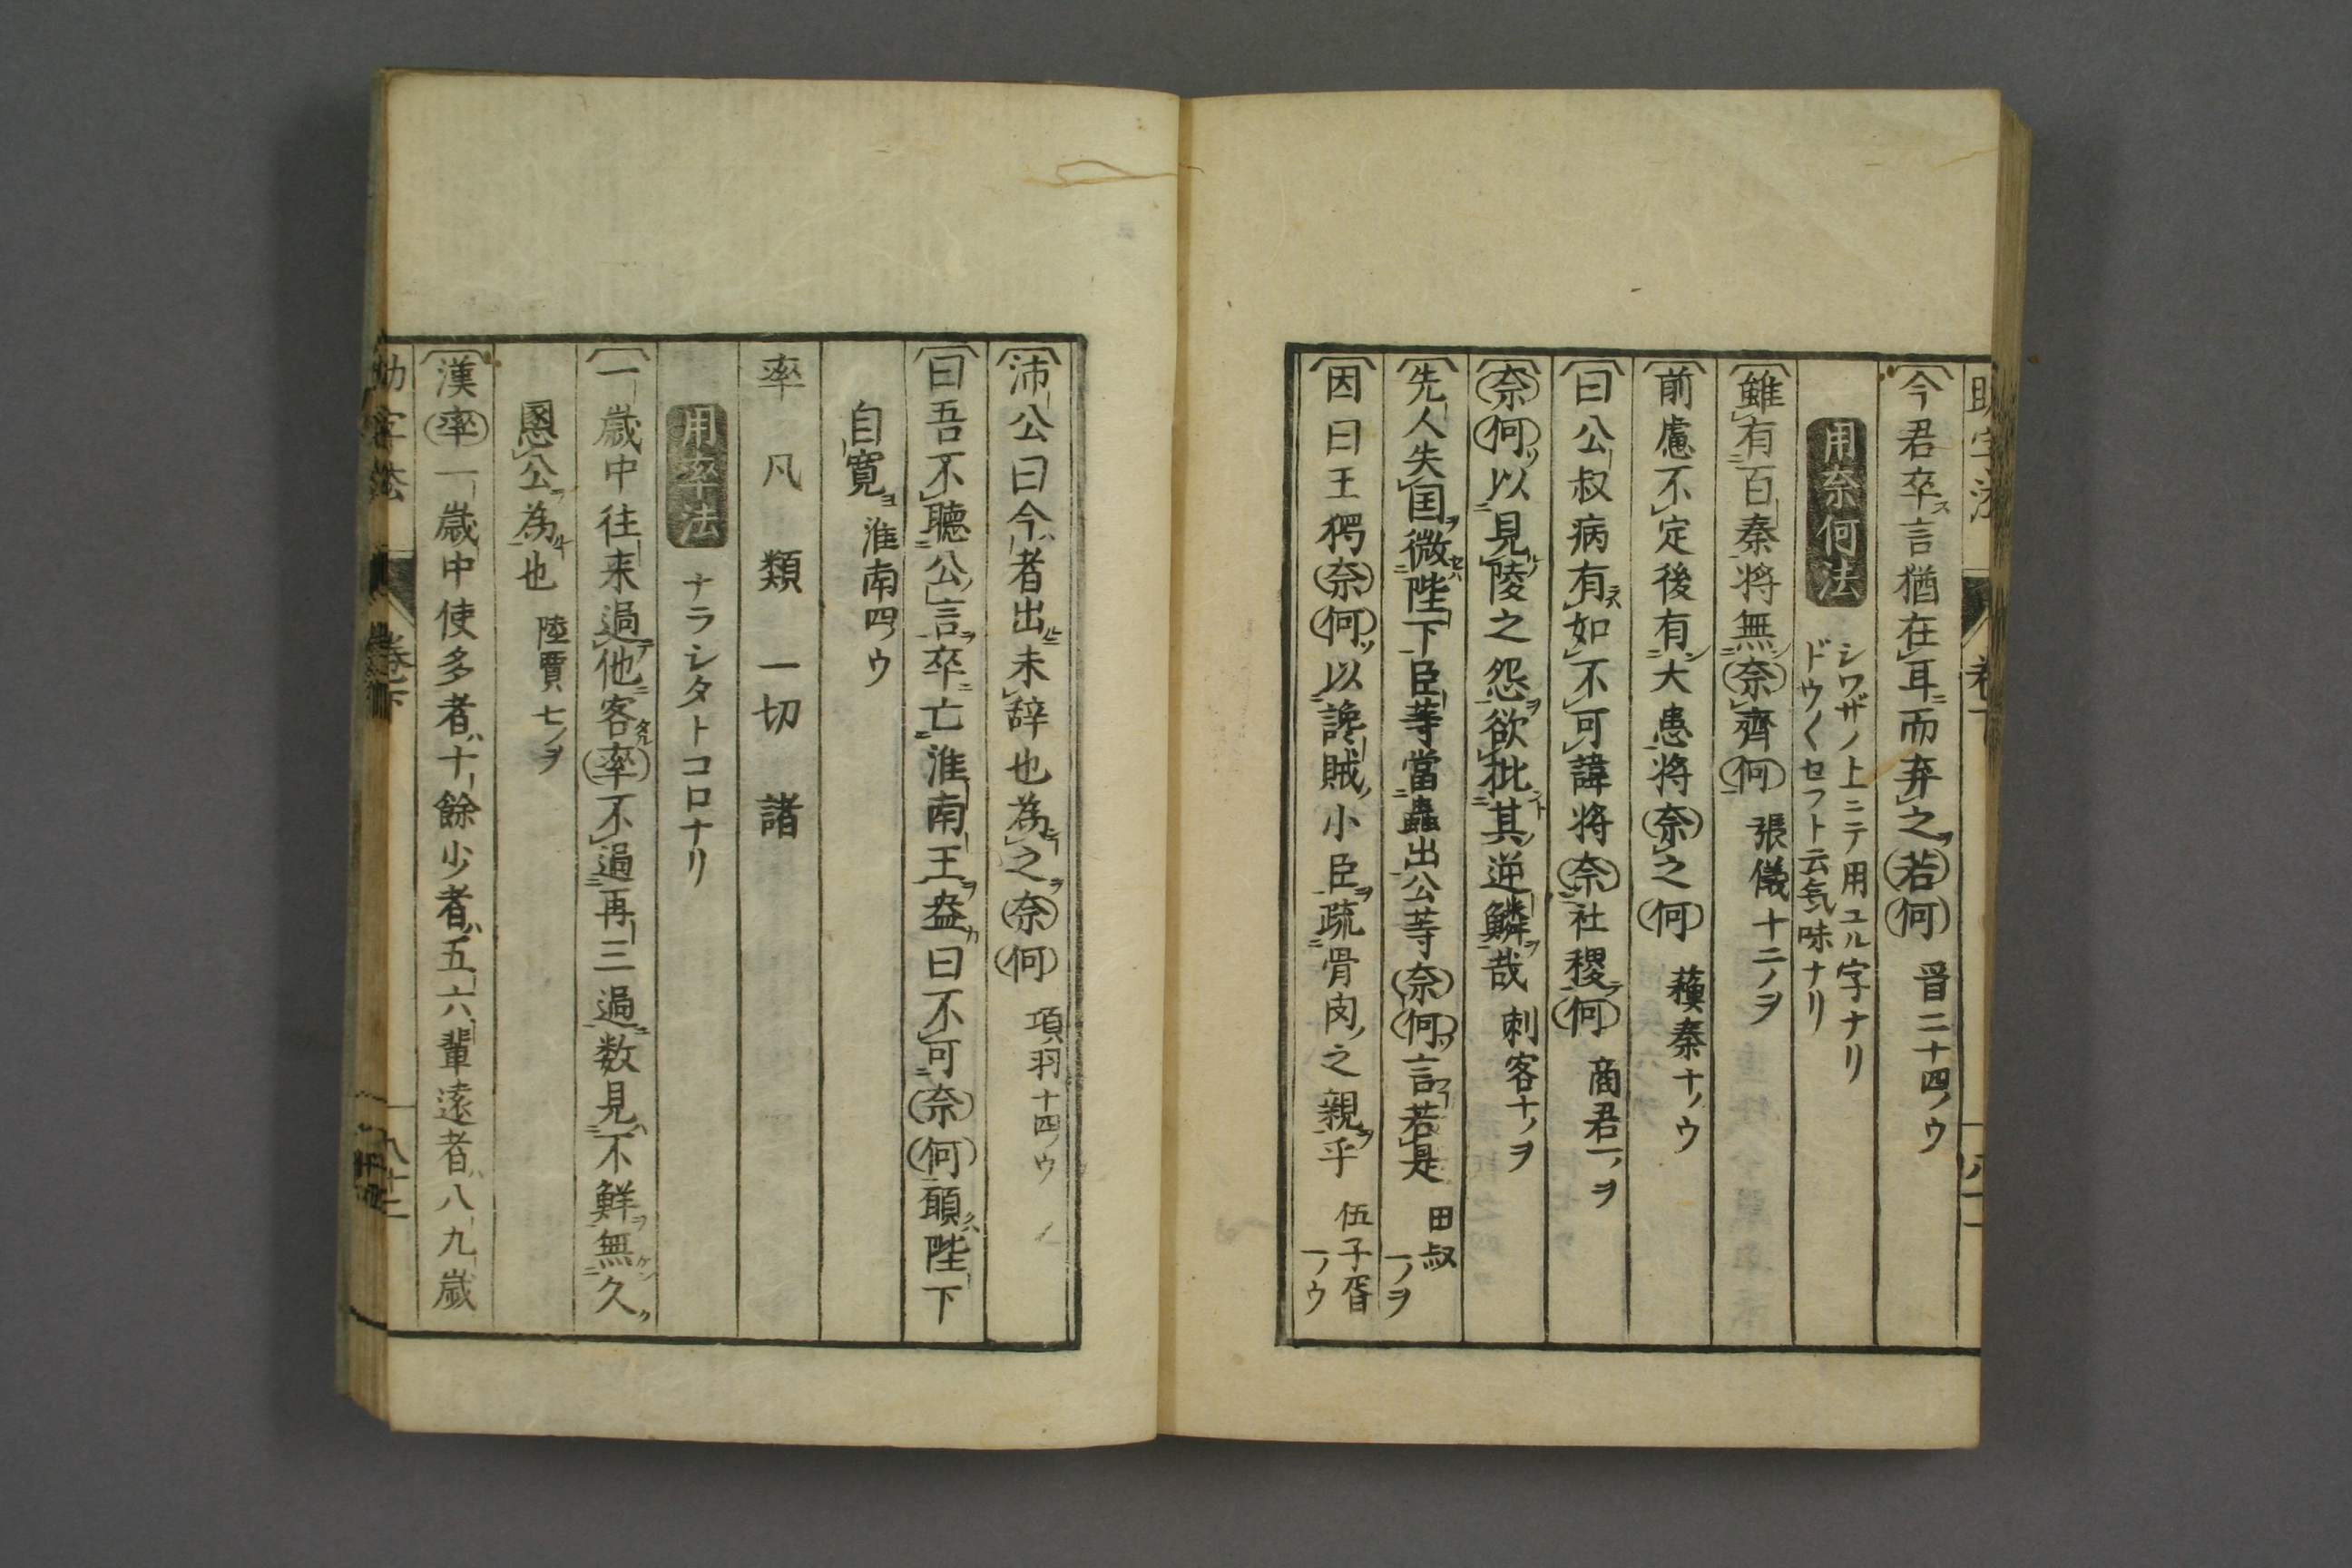 今君卒言猶在耳而弃之若何 晋二十四ノウ
用奈何法 シワザノ上ニテ用ユル字ナリ
ドウ〱セフト云気味ナリ
雖有百秦将無奈齊何 張儀十二ノヲ
前慮不定後有大患将奈之何 蘓秦十ノウ
曰公叔病有如不可諱将奈社稷何 商君一ノヲ
奈何以見陵之怨欲批其逆鱗哉 刺客十ノヲ
先人失国微陛下臣等當蟲出公等奈何言若是 田叔一ノヲ
因曰王獨奈何以讒賊小臣疏骨肉之親乎 伍子胥一ノウ
沛公曰今者出未辞也為之奈何 項羽十四ノウ
曰吾不聽公言卒亡淮南王盎曰不可奈何願陛下
自寛 淮南四ノウ
率 凡 類 一切 諸
用率法 ナラシタトコロナリ
一歳中往来過他客率不過再三過数見不鮮無久
慁公為也 陸賈七ノヲ
漢率一歳中使多者十餘少者五六輩遠者八九歳
助字法 巻下